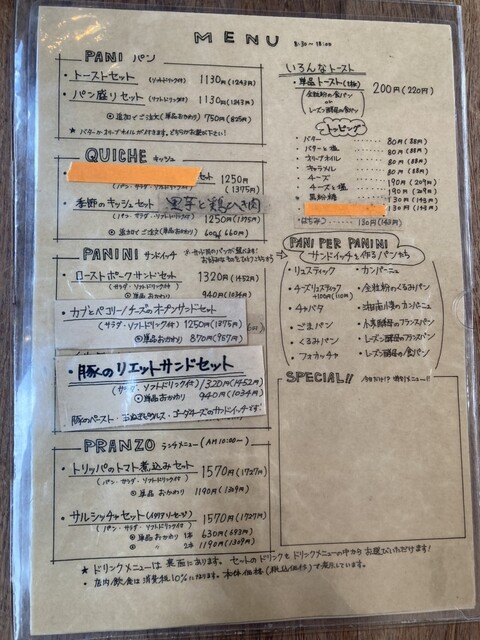 MENU 8:30~18:00
PANI パン
・トーストセット (ソフトドリンク付) 1130円(1243円)
・パン盛りセット (ソフトドリンク付) 1130円(1243円)
⊙追加でご注文(単品おかわり) 750円(825円)
★バターかオリーブオイルが付きます。どちらかお選び下さい!
QUICHE キッシュ
セット 1250円
(パン・サラダ・ソフトドリンク付) (1375円)
・季節のキッシュセット 里芋と鶏ひき肉
(パン・サラダ・ソフトドリンク付) 1250円(1375円)
⊙追加でご注文(単品おかわり) 600円(660円)
PANINI サンドイッチ
・ローストポークサンドセット 1320円(1452円)
(サラダ・ソフトドリンク付)
⊙単品おかわり 940円(1034円)
・カブとペコリーノチーズのオープンサンドセット
(サラダ・ソフトドリンク付) 1250円(1375円)
⊙単品おかわり 870円(957円)
・豚のリエットサンドセット
(サラダ・ソフトドリンク付) 1320円(1452円)
⊙単品おかわり 940円(1034円)
豚のペースト・玉ねぎピクルス・ゴーダチーズのサンドイッチです!
PRANZO ランチメニュー (AM10:00~)
・トリッパのトマト煮込みセット 1570円(1727円)
(パン・サラダ・ソフトドリンク付)
⊙単品おかわり 1190円(1309円)
・サルシッチャセット(イタリアソーセージ) 1570円(1727円)
(パン・サラダ・ソフトドリンク付)
⊙単品おかわり 1本 630円(693円)
⊙ 〃 2本 1190円(1309円)
いろんなトースト
・単品トースト(1枚) 200円(220円)
全粒粉の食パン
or
レーズン酵母の食パン
トッピング
・バター 80円(88円)
・バターと塩 80円(88円)
・オリーブオイル 80円(88円)
・キャラメル 80円(88円)
・チーズ 190円(209円)
・チーズと塩 190円(209円)
・黒糖 130円(143円)
130円(143円)
・はちみつ 130円(143円)
PANI PER PANINI
サンドイッチを作るパンたち
・リュスティック
・チーズリュスティック
+100円(110円)
・チャバタ
・ごまパン
・くるみパン
・フォカッチャ
・カンパーニュ
・全粒粉のくるみパン
・湘南小麦のカンパーニュ
・小麦酵母のフランスパン
・レーズン酵母のフランスパン
・レーズン酵母の食パン
SPECIAL!! 今日だけ!? 特別メニュー!!
★ドリンクメニューは裏面にあります。セットのドリンクもドリンクメニューの中からお選びいただけます!
・店内飲食は消費税10%になります。本体価格(税込価格)で表示しています。